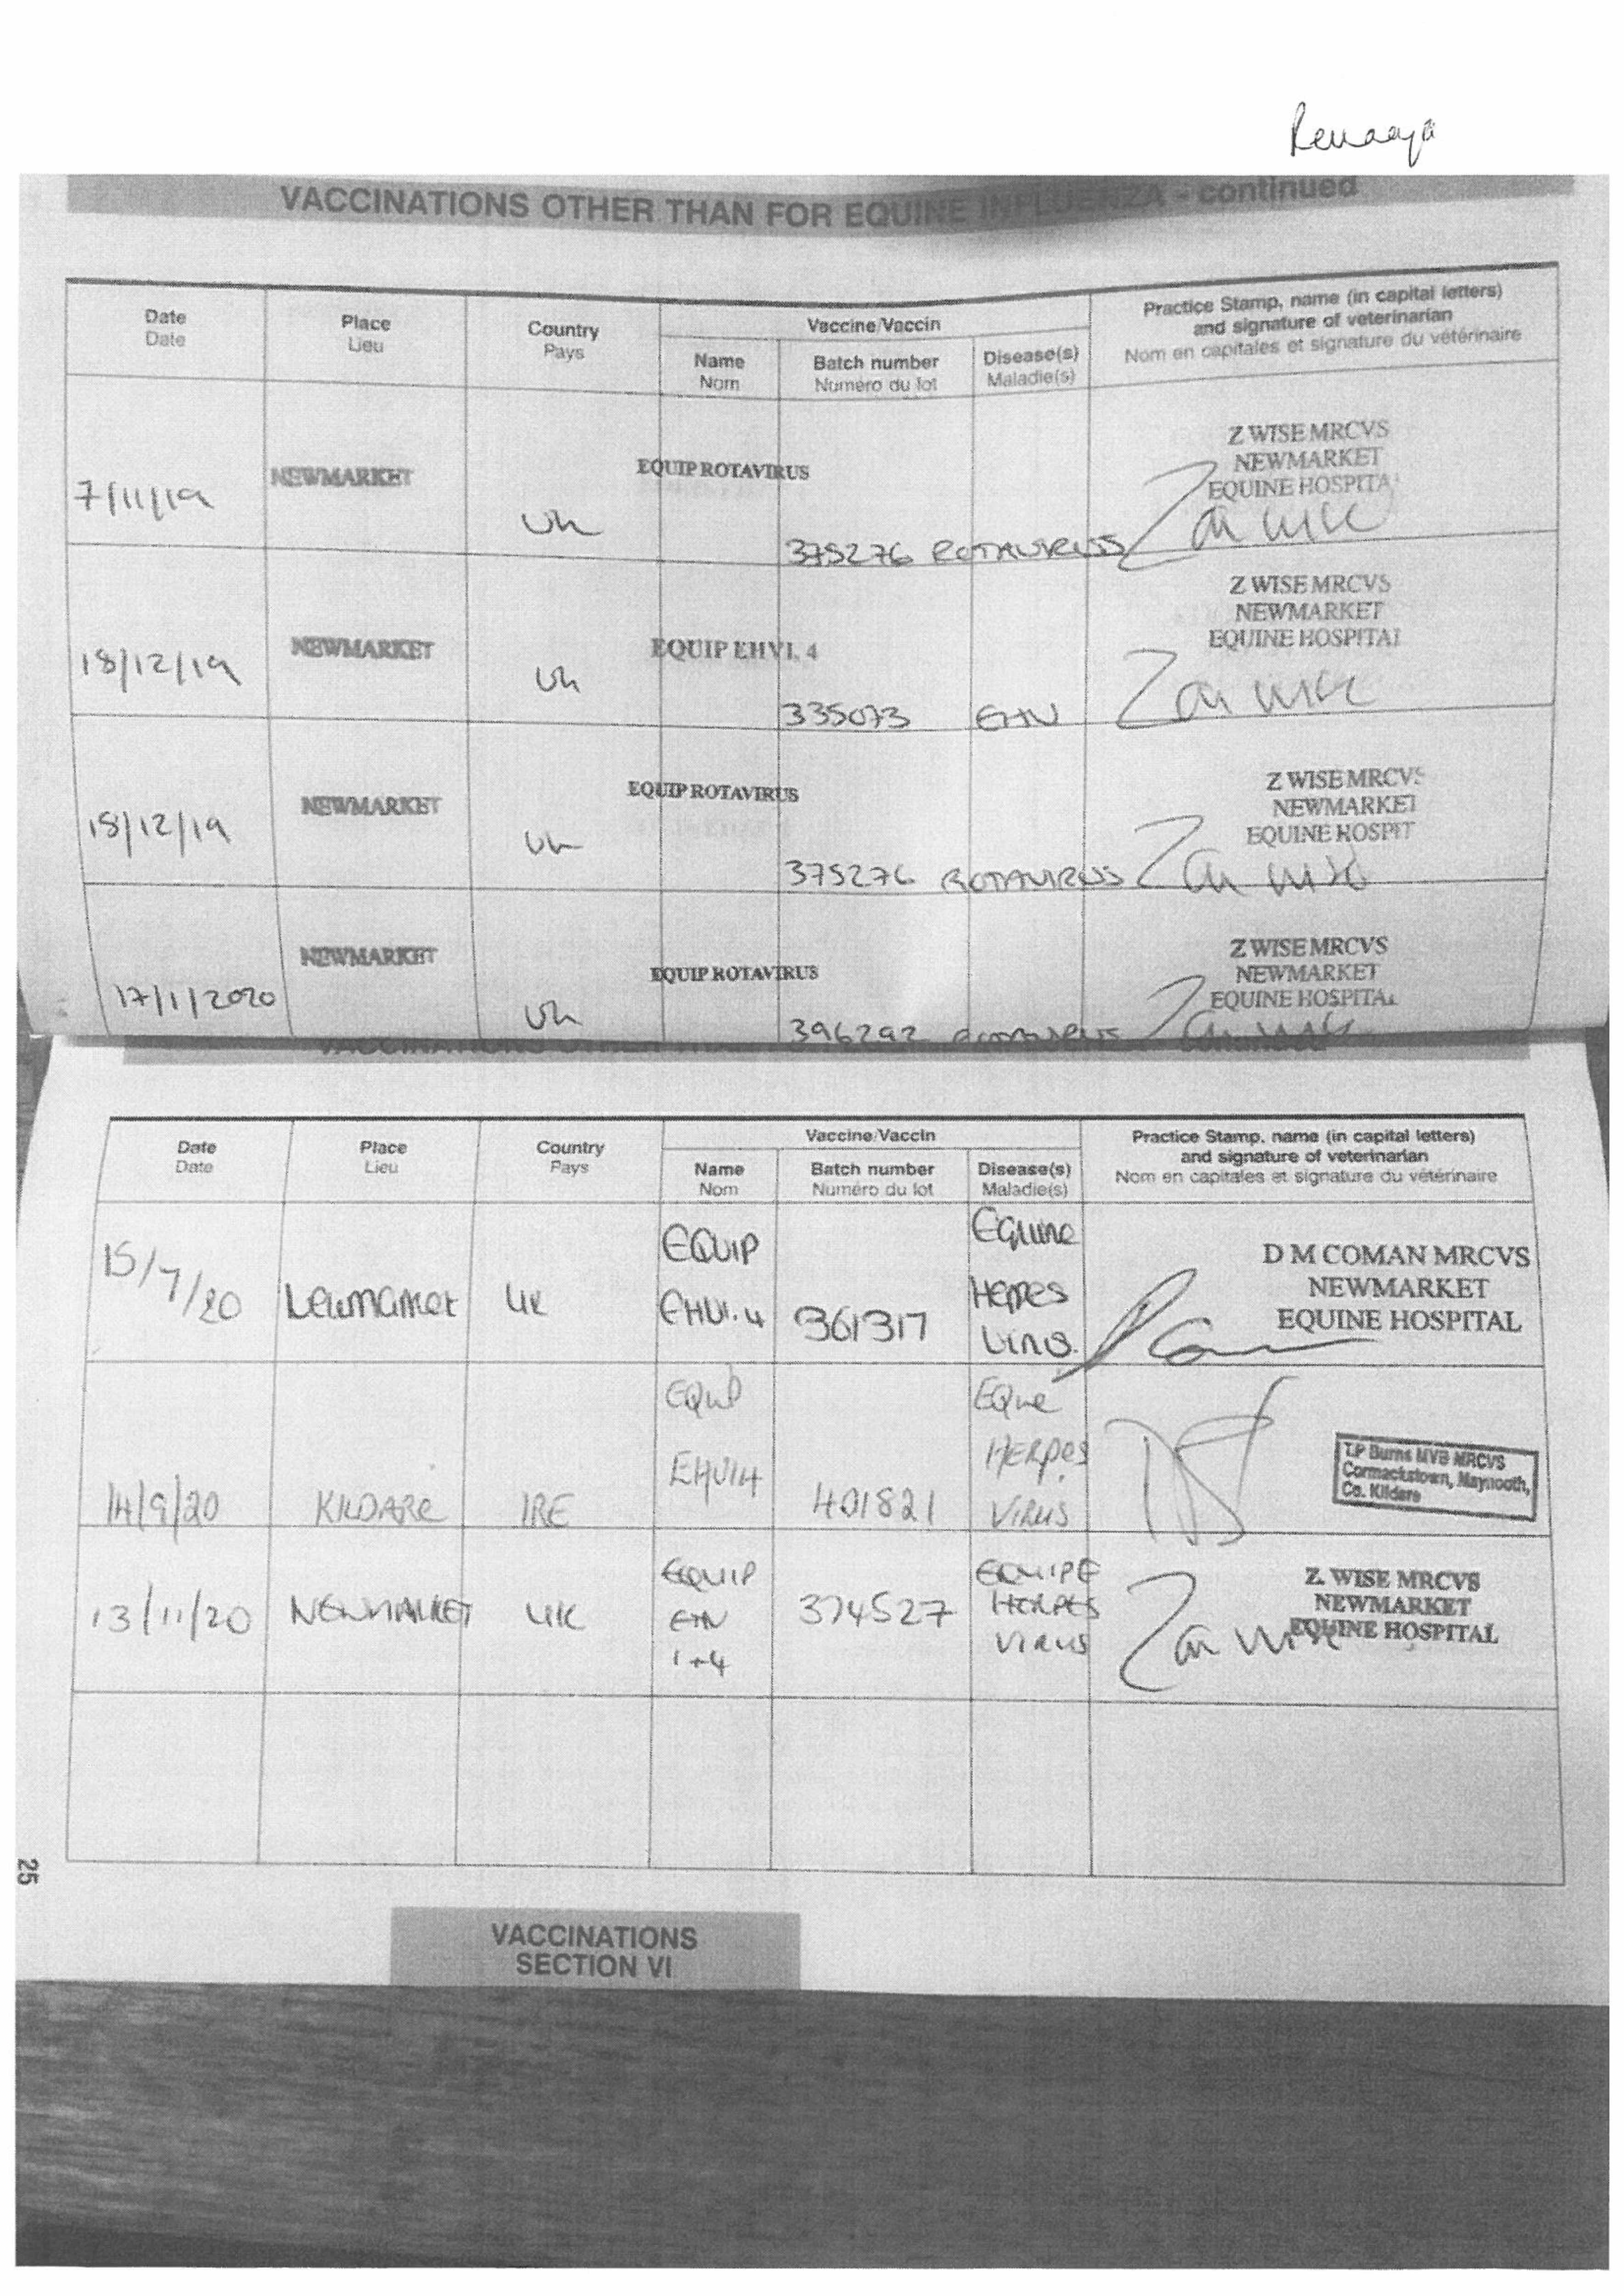 Renaaya
VACCINATIONS OTHER THAN FOR EQUINE INFLUENZA - continued
Date
Date
Place
Lieu
Country
Pays
Vaccine/Vaccin
Name
Nom
Batch number
Numéro du lot
Disease(s)
Maladie(s)
Practice Stamp, name (in capital letters)
and signature of veterinarian
Nom en capitales et signature du vétérinaire
7/11/19
NEWMARKET
Uk
EQUIP ROTAVIRUS
375276 ROTAVIRUS
Z WISE MRCVS
NEWMARKET
EQUINE HOSPITA
18/12/19
NEWMARKET
Uk
EQUIP EHV1, 4
335073
EHV
Z WISE MRCVS
NEWMARKET
EQUINE HOSPITAL
18/12/19
NEWMARKET
Uk
EQUIP ROTAVIRUS
375276 ROTAVIRUS
Z WISE MRCVS
NEWMARKET
EQUINE HOSPIT
17/1/2020
NEWMARKET
Uk
EQUIP ROTAVIRUS
396292 ROTAVIRUS
Z WISE MRCVS
NEWMARKET
EQUINE HOSPITAL
Date
Date
Place
Lieu
Country
Pays
Vaccine/Vaccin
Name
Nom
Batch number
Numéro du lot
Disease(s)
Maladie(s)
Practice Stamp, name (in capital letters)
and signature of veterinarian
Nom en capitales et signature du vétérinaire
15/7/20
Newmarket
UK
EQUIP
EHV1.4
361317
Equine
Herpes
Virus.
D M COMAN MRCVS
NEWMARKET
EQUINE HOSPITAL
14/9/20
KILDARE
IRE
EQUIP
EHV14
401821
EQUE
HERPES
VIRUS
T.P Burns MVB MRCVS
Cormackstown, Maynooth,
Co. Kildare
13/11/20
NEWMARKET
UK
EQUIP
EHV
1+4
374527
EQUIPE
HERPES
VIRUS
Z. WISE MRCVS
NEWMARKET
EQUINE HOSPITAL
25
VACCINATIONS
SECTION VI